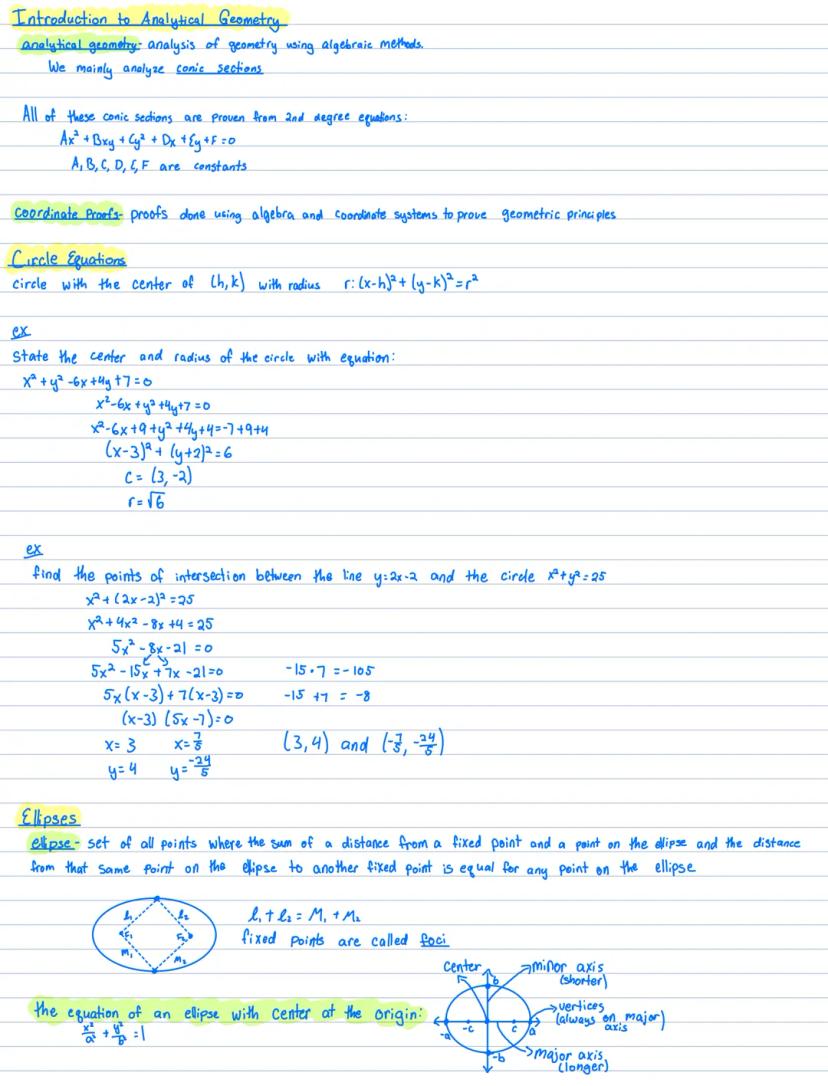 Introduction to Analytical Geometry
analytical geometry- analysis of geometry using algebraic methods.
We mainly analyze conic sections
All of these conic sections are proven from 2nd degree equations:
Ax² + Bxy + Cy² + Dx + Ey + F = 0
A, B, C, D, E, F are constants
Coordinate Proofs- proofs done using algebra and coordinate systems to prove geometric principles
Circle Equations
circle with the center of (h,k) with radius r: (x-h)² + (y-k)² = r²
ex
State the center and radius of the circle with equation:
x² + y² - 6x + 4y + 7 = 0
x² - 6x + y² + 4y + 7 = 0
x² - 6x + 9 + y² + 4y + 4 = -7 + 9 + 4
(x-3)² + (y+2)² = 6
C = (3, -2)
r = √6
ex
find the points of intersection between the line y = 2x - 2 and the circle x² + y² = 25
x² + (2x - 2)² = 25
x² + 4x² - 8x + 4 = 25
5x² - 8x - 21 = 0
5x² - 15x + 7x - 21 = 0 -15 · 7 = -105
5x(x-3) + 7(x-3) = 0 -15 + 7 = -8
(x-3) (5x-7) = 0
x = 3 x = 7/5 (3,4) and (-7/5, -24/5)
y = 4 y = -24/5
Ellipses
ellipse- set of all points where the sum of a distance from a fixed point and a point on the ellipse and the distance
from that same point on the ellipse to another fixed point is equal for any point on the ellipse
l₁ l₂
F₁ F₂
M₁ M₂
l₁ + l₂ = M₁ + M₂
fixed points are called foci
the equation of an ellipse with center at the origin:
x²/a² + y²/b² = 1
center
minor axis
(shorter)
b
vertices
(always on major)
axis
-a -c c a
-b
major axis
(longer)